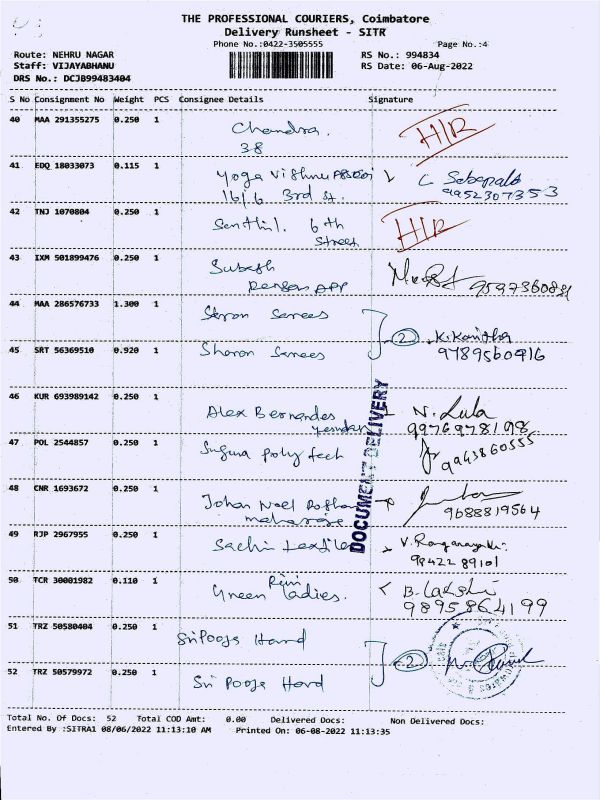 THE PROFESSIONAL COURIERS, Coimbatore
Delivery Runsheet - SITR
Phone No.:0422-3505555
Page No.:4
Route: NEHRU NAGAR
RS No.: 994834
Staff: VIJAYABHANU
RS Date: 06-Aug-2022
DRS No.: DCJB99483404
S No Consignment No Weight PCS Consignee Details Signature
40 MAA 291355275 0.250 1 Chandra. H/R
38
41 EDQ 18033073 0.115 1 Yoga Vishnu
16/6 3rd st. 9952307353
42 TNJ 1070804 0.250 1 Senthil. 6th H/R
Street
43 IXM 501899476 0.250 1 Subash
APP 9597360881
44 MAA 286576733 1.300 1 Sarees
2
45 SRT 56369510 0.920 1 Sharon Sarees 9789560916
46 KUR 693989142 0.250 1 Alex Bernandes N. Lula
9976978198
47 POL 2544857 0.250 1 Suguna poly tech 9943860555
48 CNR 1693672 0.250 1 Johan Noel
9688819564
49 RJP 2967955 0.250 1 Sachin textiles V.
99422 89101
50 TCR 30001982 0.110 1 Green ladies. B.
9895864199
DOCUMENT DELIVERY
51 TRZ 50580404 0.250 1 Sri Pooja Hard
2
52 TRZ 50579972 0.250 1 Sri Pooja Hard
Total No. Of Docs: 52 Total COD Amt: 0.00 Delivered Docs: Non Delivered Docs:
Entered By :SITRA1 08/06/2022 11:13:10 AM Printed On: 06-08-2022 11:13:35